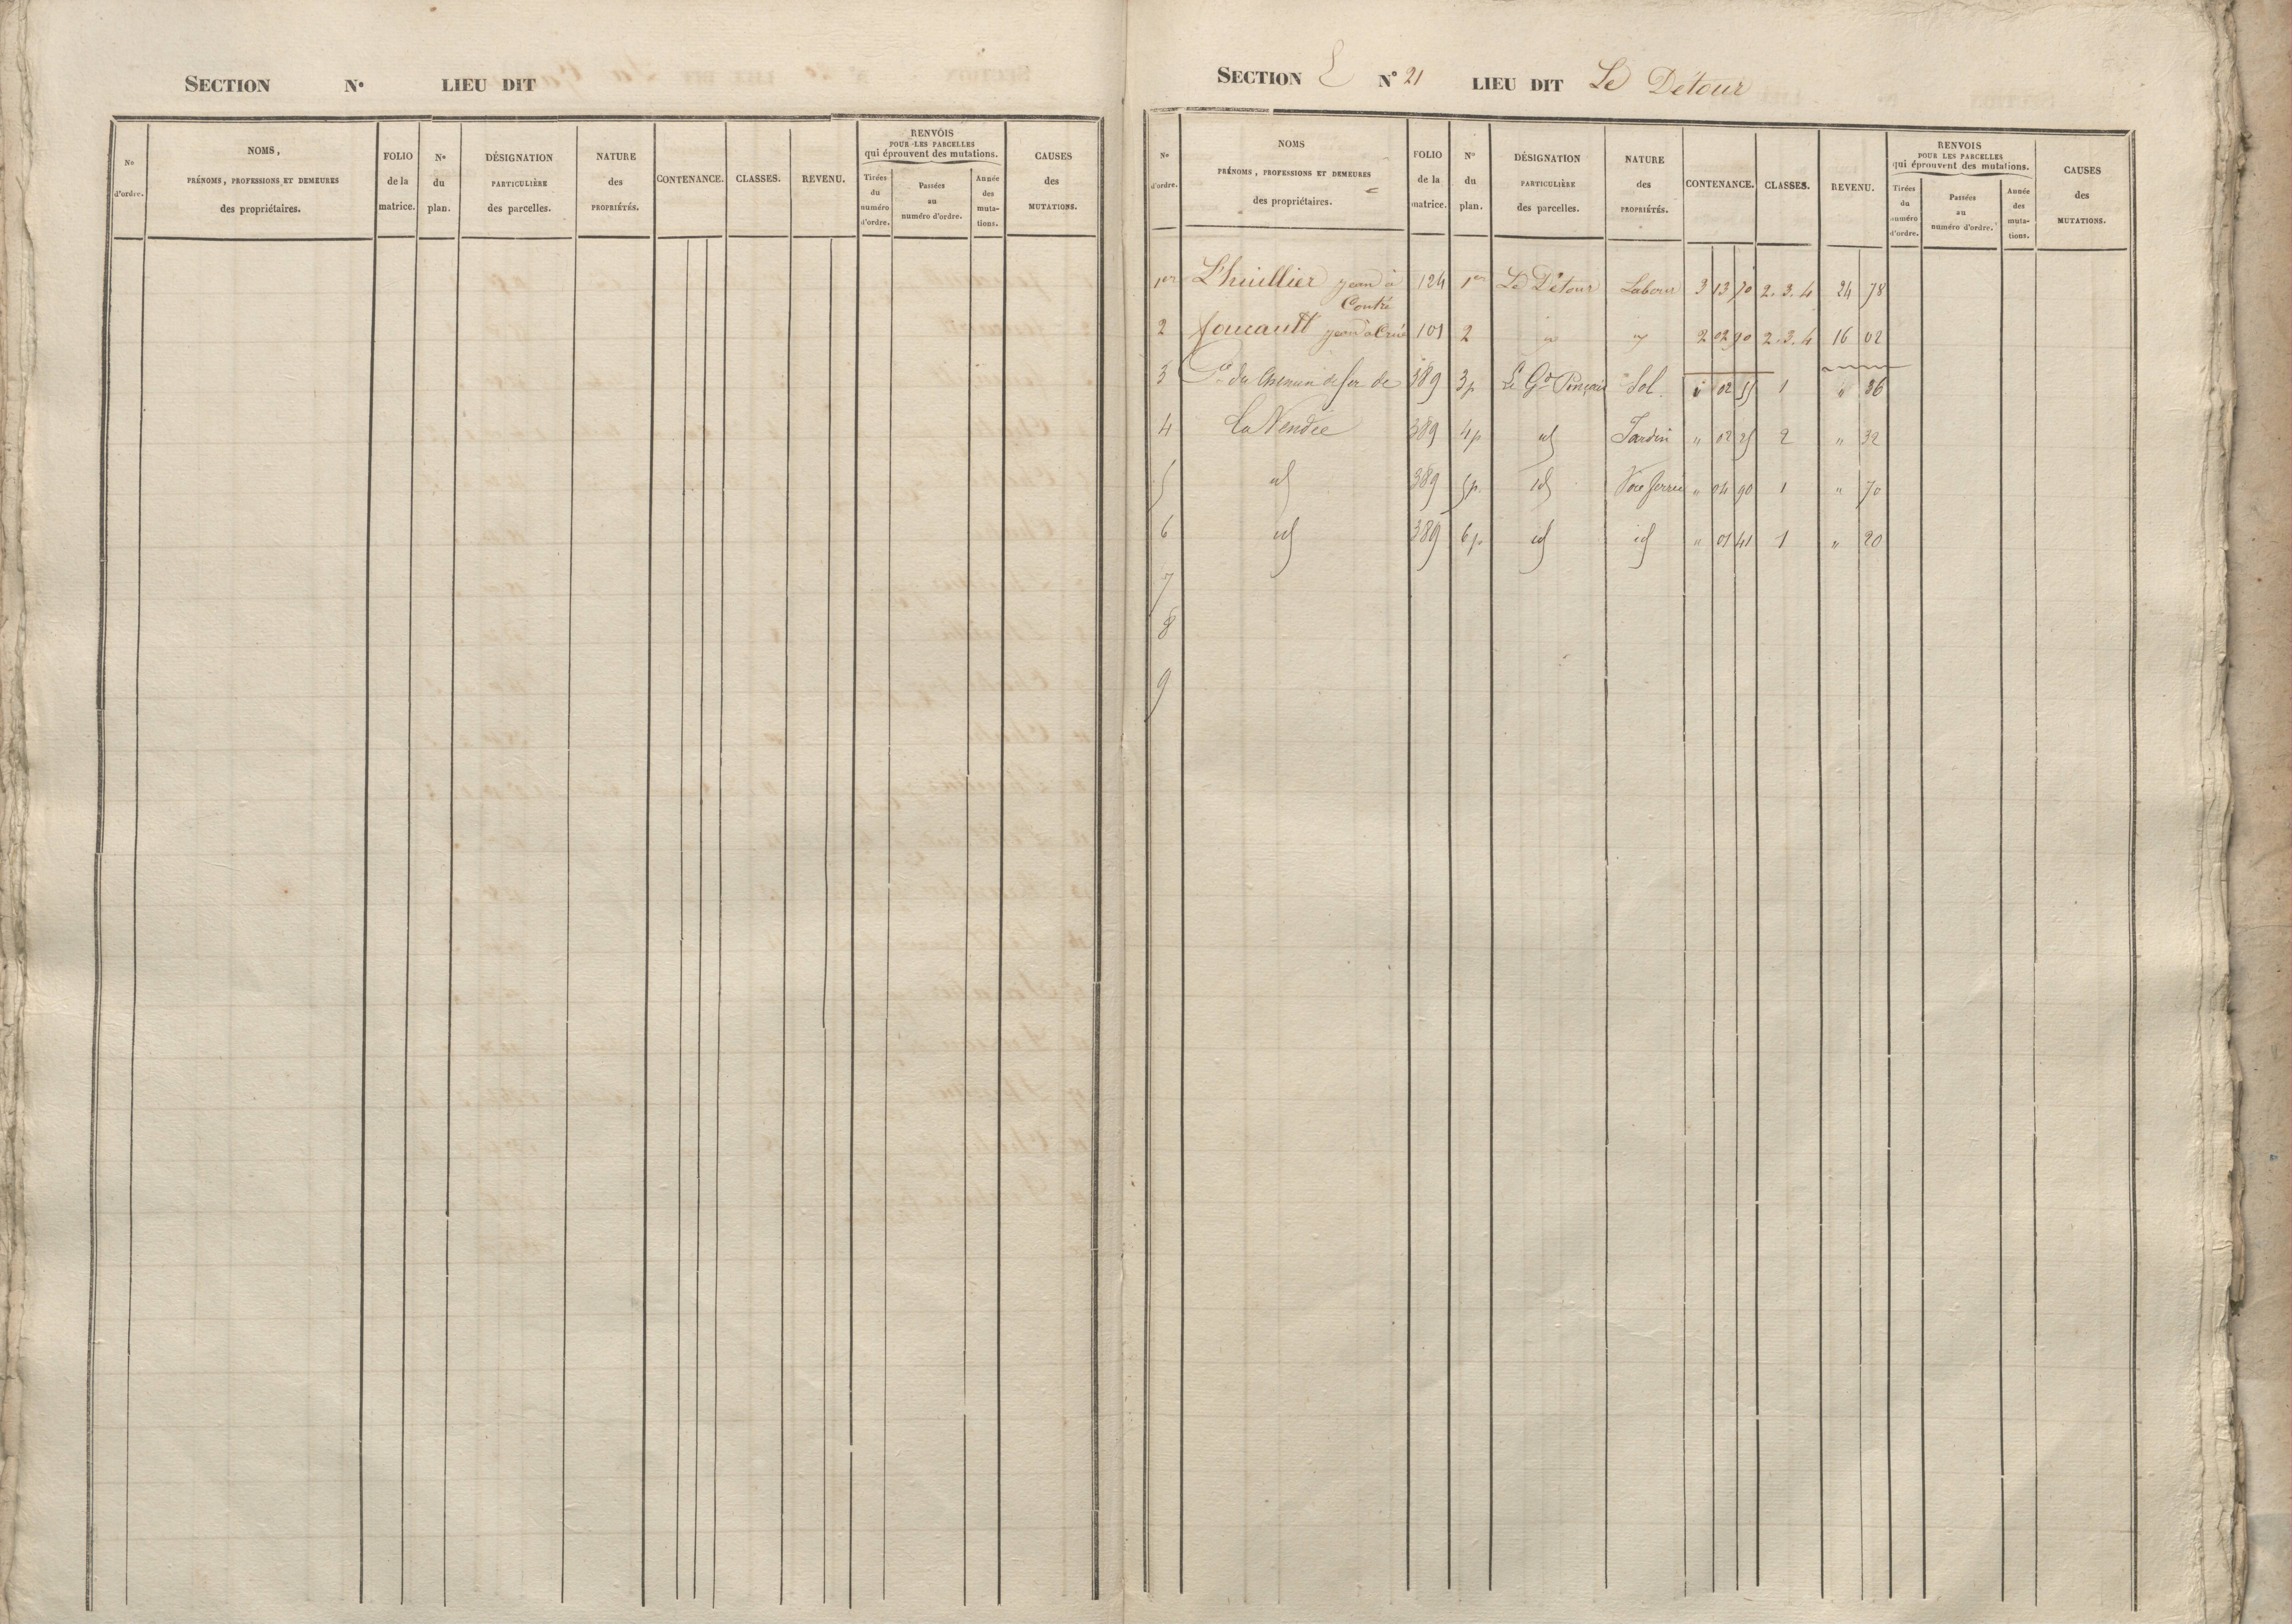 SECTION N° LIEU DIT
No d'ordre. NOMS, PRÉNOMS, PROFESSIONS ET DEMEURES des propriétaires. FOLIO de la matrice. No du plan. DÉSIGNATION PARTICULIÈRE des parcelles. NATURE des PROPRIÉTÉS. CONTENANCE. CLASSES. REVENU. RENVOIS POUR LES PARCELLES qui éprouvent des mutations. Tirées du numéro d'ordre. Passées au numéro d'ordre. Année des muta-tions. CAUSES des MUTATIONS.
SECTION N° 21 LIEU DIT Le Détour
No d'ordre. NOMS PRÉNOMS, PROFESSIONS ET DEMEURES des propriétaires. FOLIO de la matrice. N° du plan. DÉSIGNATION PARTICULIÈRE des parcelles. NATURE des PROPRIÉTÉS. CONTENANCE. CLASSES. REVENU. RENVOIS POUR LES PARCELLES qui éprouvent des mutations. Tirées du numéro d'ordre. Passées au numéro d'ordre. Année des muta-tions. CAUSES des MUTATIONS.
1er L'huillier jean à 124 1er Le Détour Labour 3 13 70 2.3.4 24 78
Contré
2 foucault jean 101 2 " " 2 02 90 2.3.4 16 02
3 Cie du Chemin de fer de 389 3p Le Gd Sol. " 02 55 1 " 36
4 La Vendée 389 4p id Jardin " 02 25 2 " 32
5 id 389 5p id Voie ferrée " 04 90 1 " 70
6 id 389 6p id id " 01 41 1 " 20
7
8
9